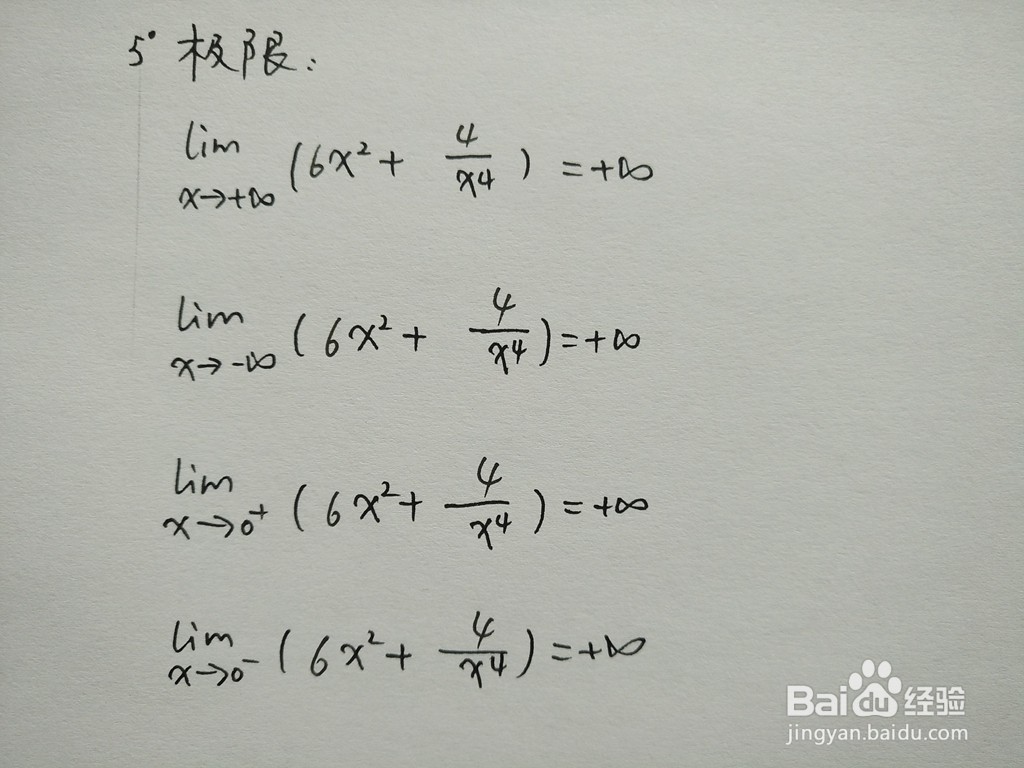 5° 极限:
lim x→+∞ (6x² + 4/x⁴) = +∞
lim x→-∞ (6x² + 4/x⁴) = +∞
lim x→0⁺ (6x² + 4/x⁴) = +∞
lim x→0⁻ (6x² + 4/x⁴) = +∞
Baidu 经验
jingyan.baidu.com